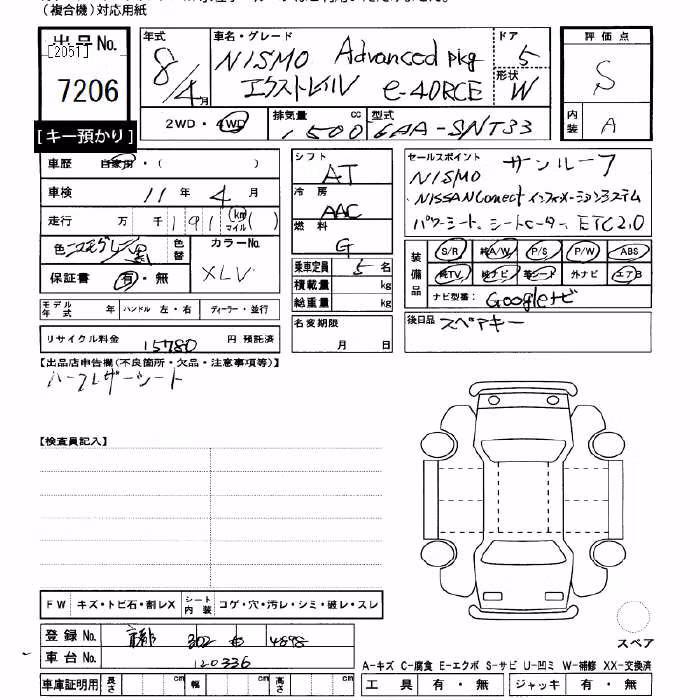 (複合機)対応用紙
出品No.
[2051]
7206
[キー預かり]
年式
8/4月
車名・グレード
NISMO Advanced pkg
エクストレイル e-4ORCE
ドア
5
形状
W
2WD・4WD
排気量
1500cc
型式
6AA-SNT33
評価点
S
内装
A
車歴 自家用・( )
車検 11年 4月
走行 万 千191(km マイル)( )
色
黒
色替
カラーNo.
XLV
保証書 有・無
モデル年式 年 ハンドル 左・右 ディーラー・並行
リサイクル料金 15780 円 預託済
シフト
AT
冷房
AAC
燃料
G
乗車定員 5名
積載量 kg
総重量 kg
名変期限
月 日
セールスポイント サンルーフ
NISMO
NISSANConect インフォメーションシステム
パワーシート、シートヒーター、ETC2.0
装備品
S/R 純A/W P/S P/W ABS
純TV 純ナビ 革シート 外ナビ エアB
ナビ型番: Googleナビ
後日品 スペアキー
【出品店申告欄(不良箇所・欠品・注意事項等)】
ハーフレザーシート
【検査員記入】
FW キズ・トビ石・割レX シート内装 コゲ・穴・汚レ・シミ・破レ・スレ
登録No. 302 4898
車台No. 120336
車庫証明用 長さ cm 幅 cm 高さ cm
スペア
A-キズ C-腐食 E-エクボ S-サビ U-凹ミ W-補修 XX-交換済
工具 有・無 ジャッキ 有・無